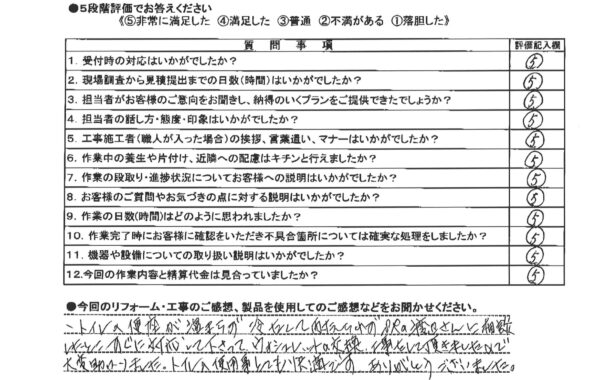 ●5段階評価でお答えください
《⑤非常に満足した ④満足した ③普通 ②不満がある ①落胆した》
質問事項 評価記入欄
1. 受付時の対応はいかがでしたか？ ⑤
2. 現場調査から見積提出までの日数(時間)はいかがでしたか？ ⑤
3. 担当者がお客様のご意向をお聞きし、納得のいくプランをご提供できたでしょうか？ ⑤
4. 担当者の話し方・態度・印象はいかがでしたか？ ⑤
5. 工事施工者(職人が入った場合)の挨拶、言葉遣い、マナーはいかがでしたか？ ⑤
6. 作業中の養生や片付け、近隣への配慮はキチンと行えましたか？ ⑤
7. 作業の段取り・進捗状況についてお客様への説明はいかがでしたか？ ⑤
8. お客様のご質問やお気づきの点に対する説明はいかがでしたか？ ⑤
9. 作業の日数(時間)はどのように思われましたか？ ⑤
10. 作業完了時にお客様に確認をいただき不具合箇所については確実な処理をしましたか？ ⑤
11. 機器や設備についての取り扱い説明はいかがでしたか？ ⑤
12.今回の作業内容と精算代金は見合っていましたか？ ⑤
●今回のリフォーム・工事のご感想、製品を使用してのご感想などをお聞かせください。
トイレの便座が
すぐに対応して下さって ウォシュレットの交換 工事をして頂きましたので
大変助かりました。トイレの使用 快適です ありがとうございました。